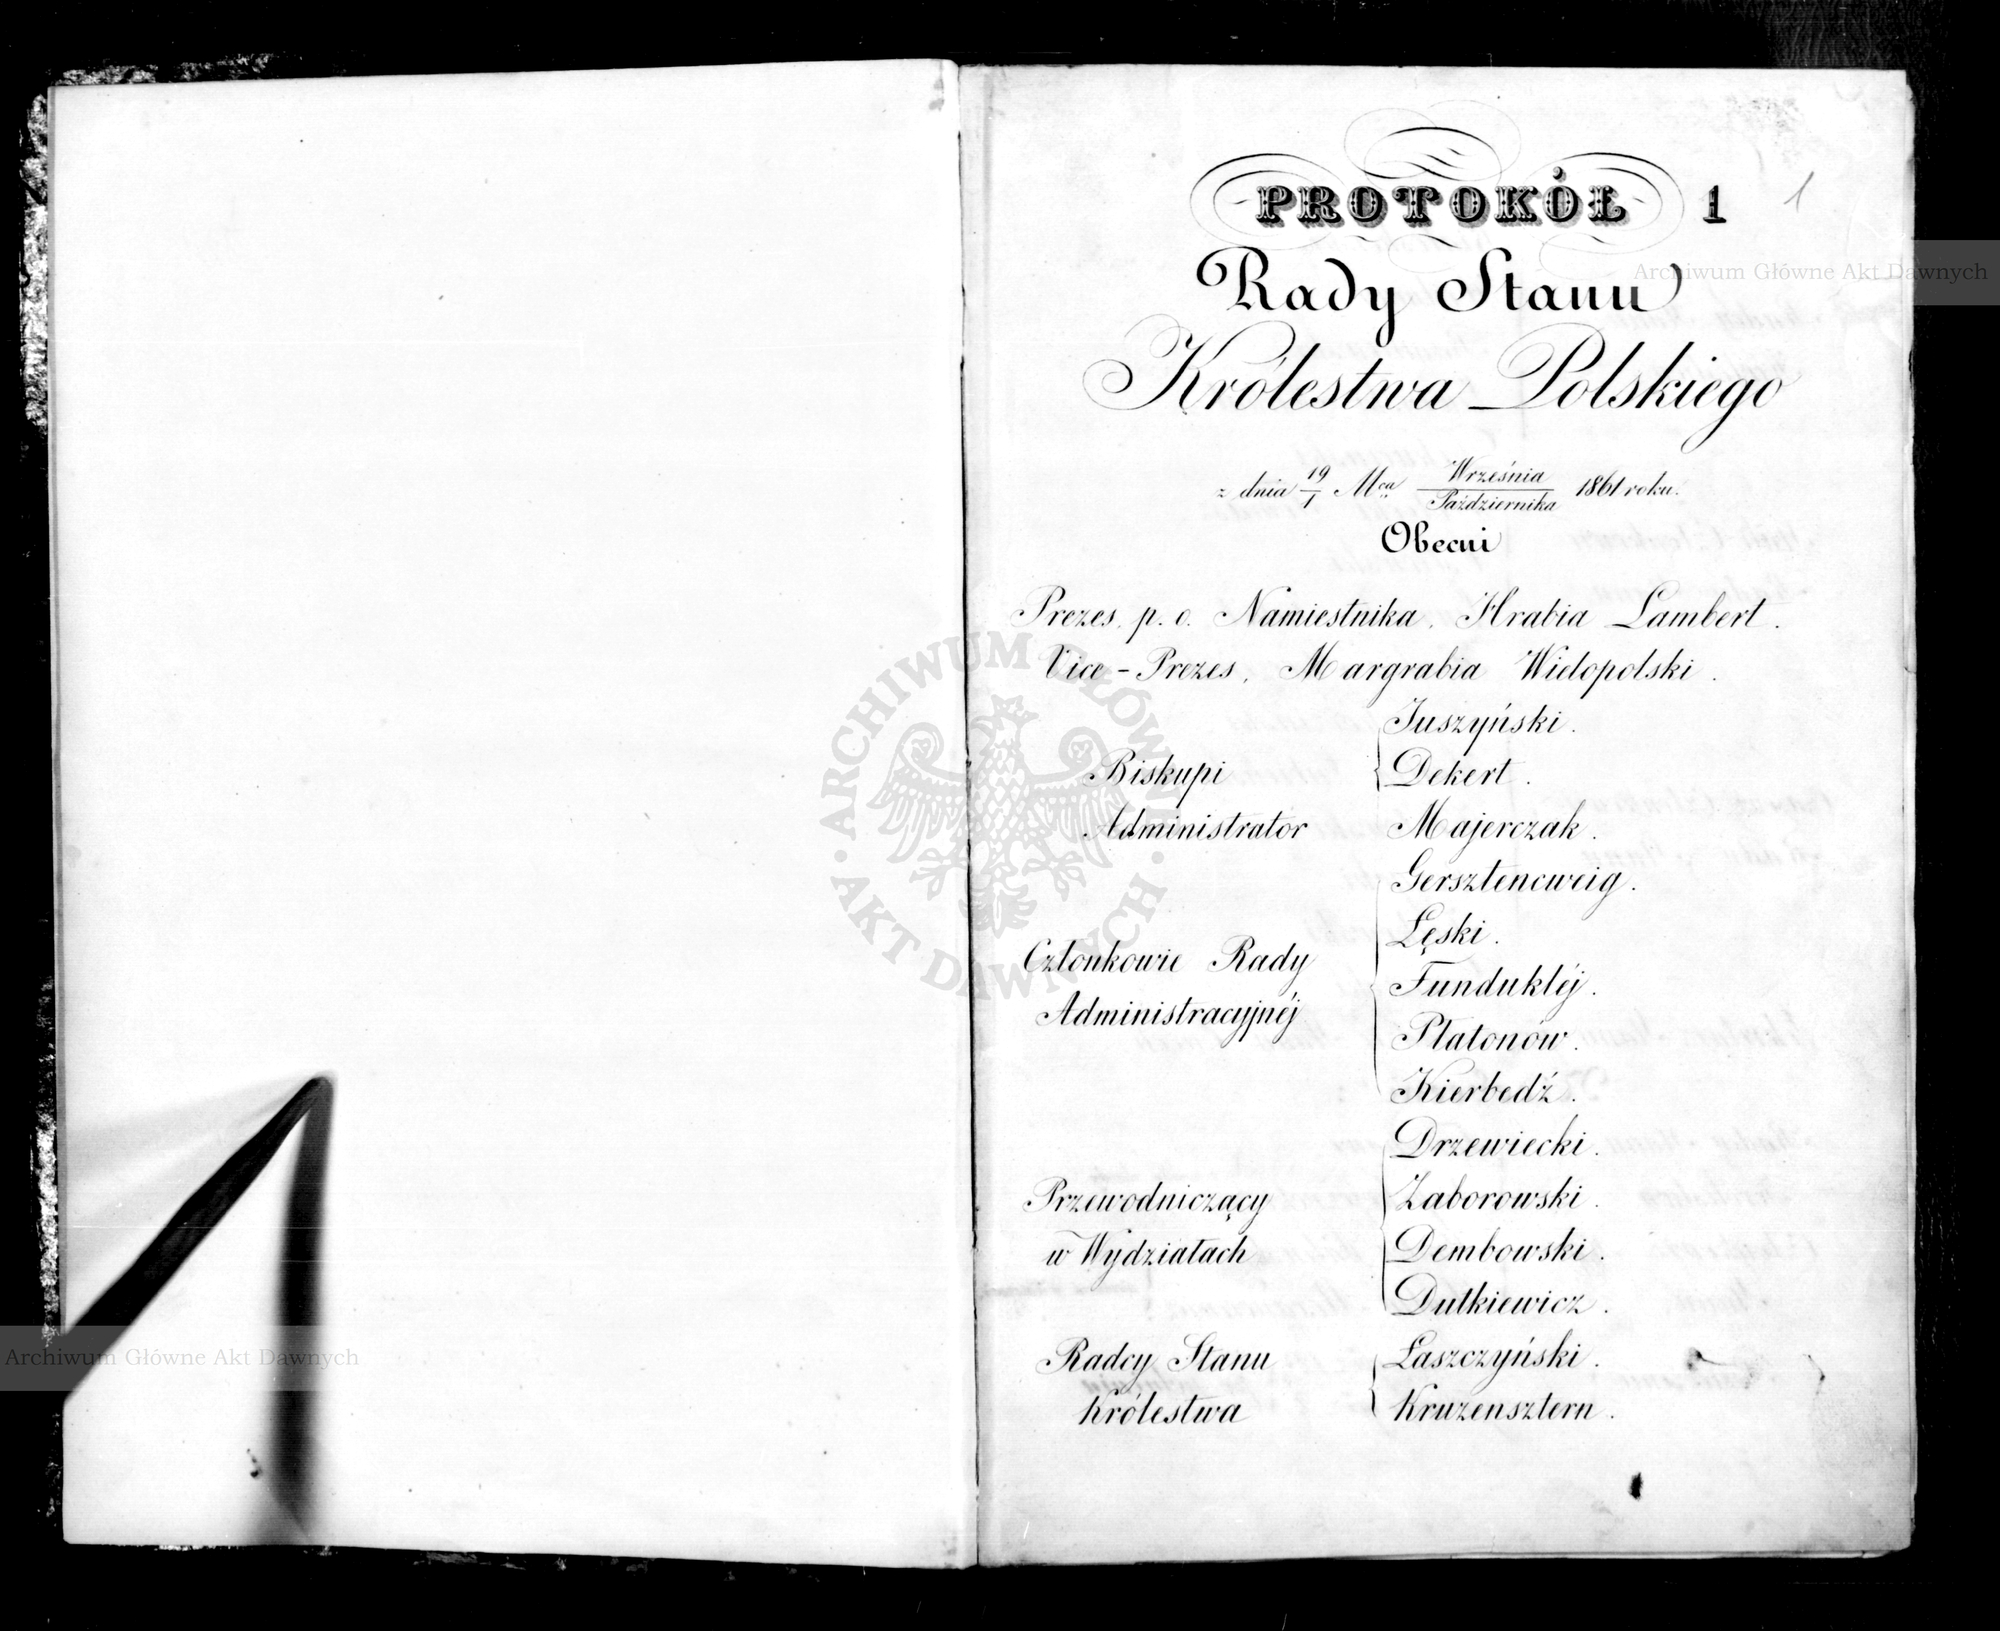 PROTOKÓŁ 1
1
Rady Stanu
Królestwa Polskiego
z dnia 19/1 Mca Września/Października 1861 roku.
Obecni
Prezes, p. o. Namiestnika, Hrabia Lambert.
Vice-Prezes, Margrabia Wielopolski.
Juszyński.
Biskupi { Dekert.
Administrator Majerczak.
Gersztencweig.
Łęski.
Członkowie Rady
Funduklèj.
Administracyjnéj
Płatonów.
Kierbedź.
Drzewiecki.
Przewodniczący Zaborowski.
w Wydziałach Dembowski.
Dutkiewicz.
Radcy Stanu Łaszczyński.
Królestwa Kruzensztern.
Archiwum Główne Akt Dawnych
ARCHIWUM GŁÓWNE AKT DAWNYCH
Archiwum Główne Akt Dawnych